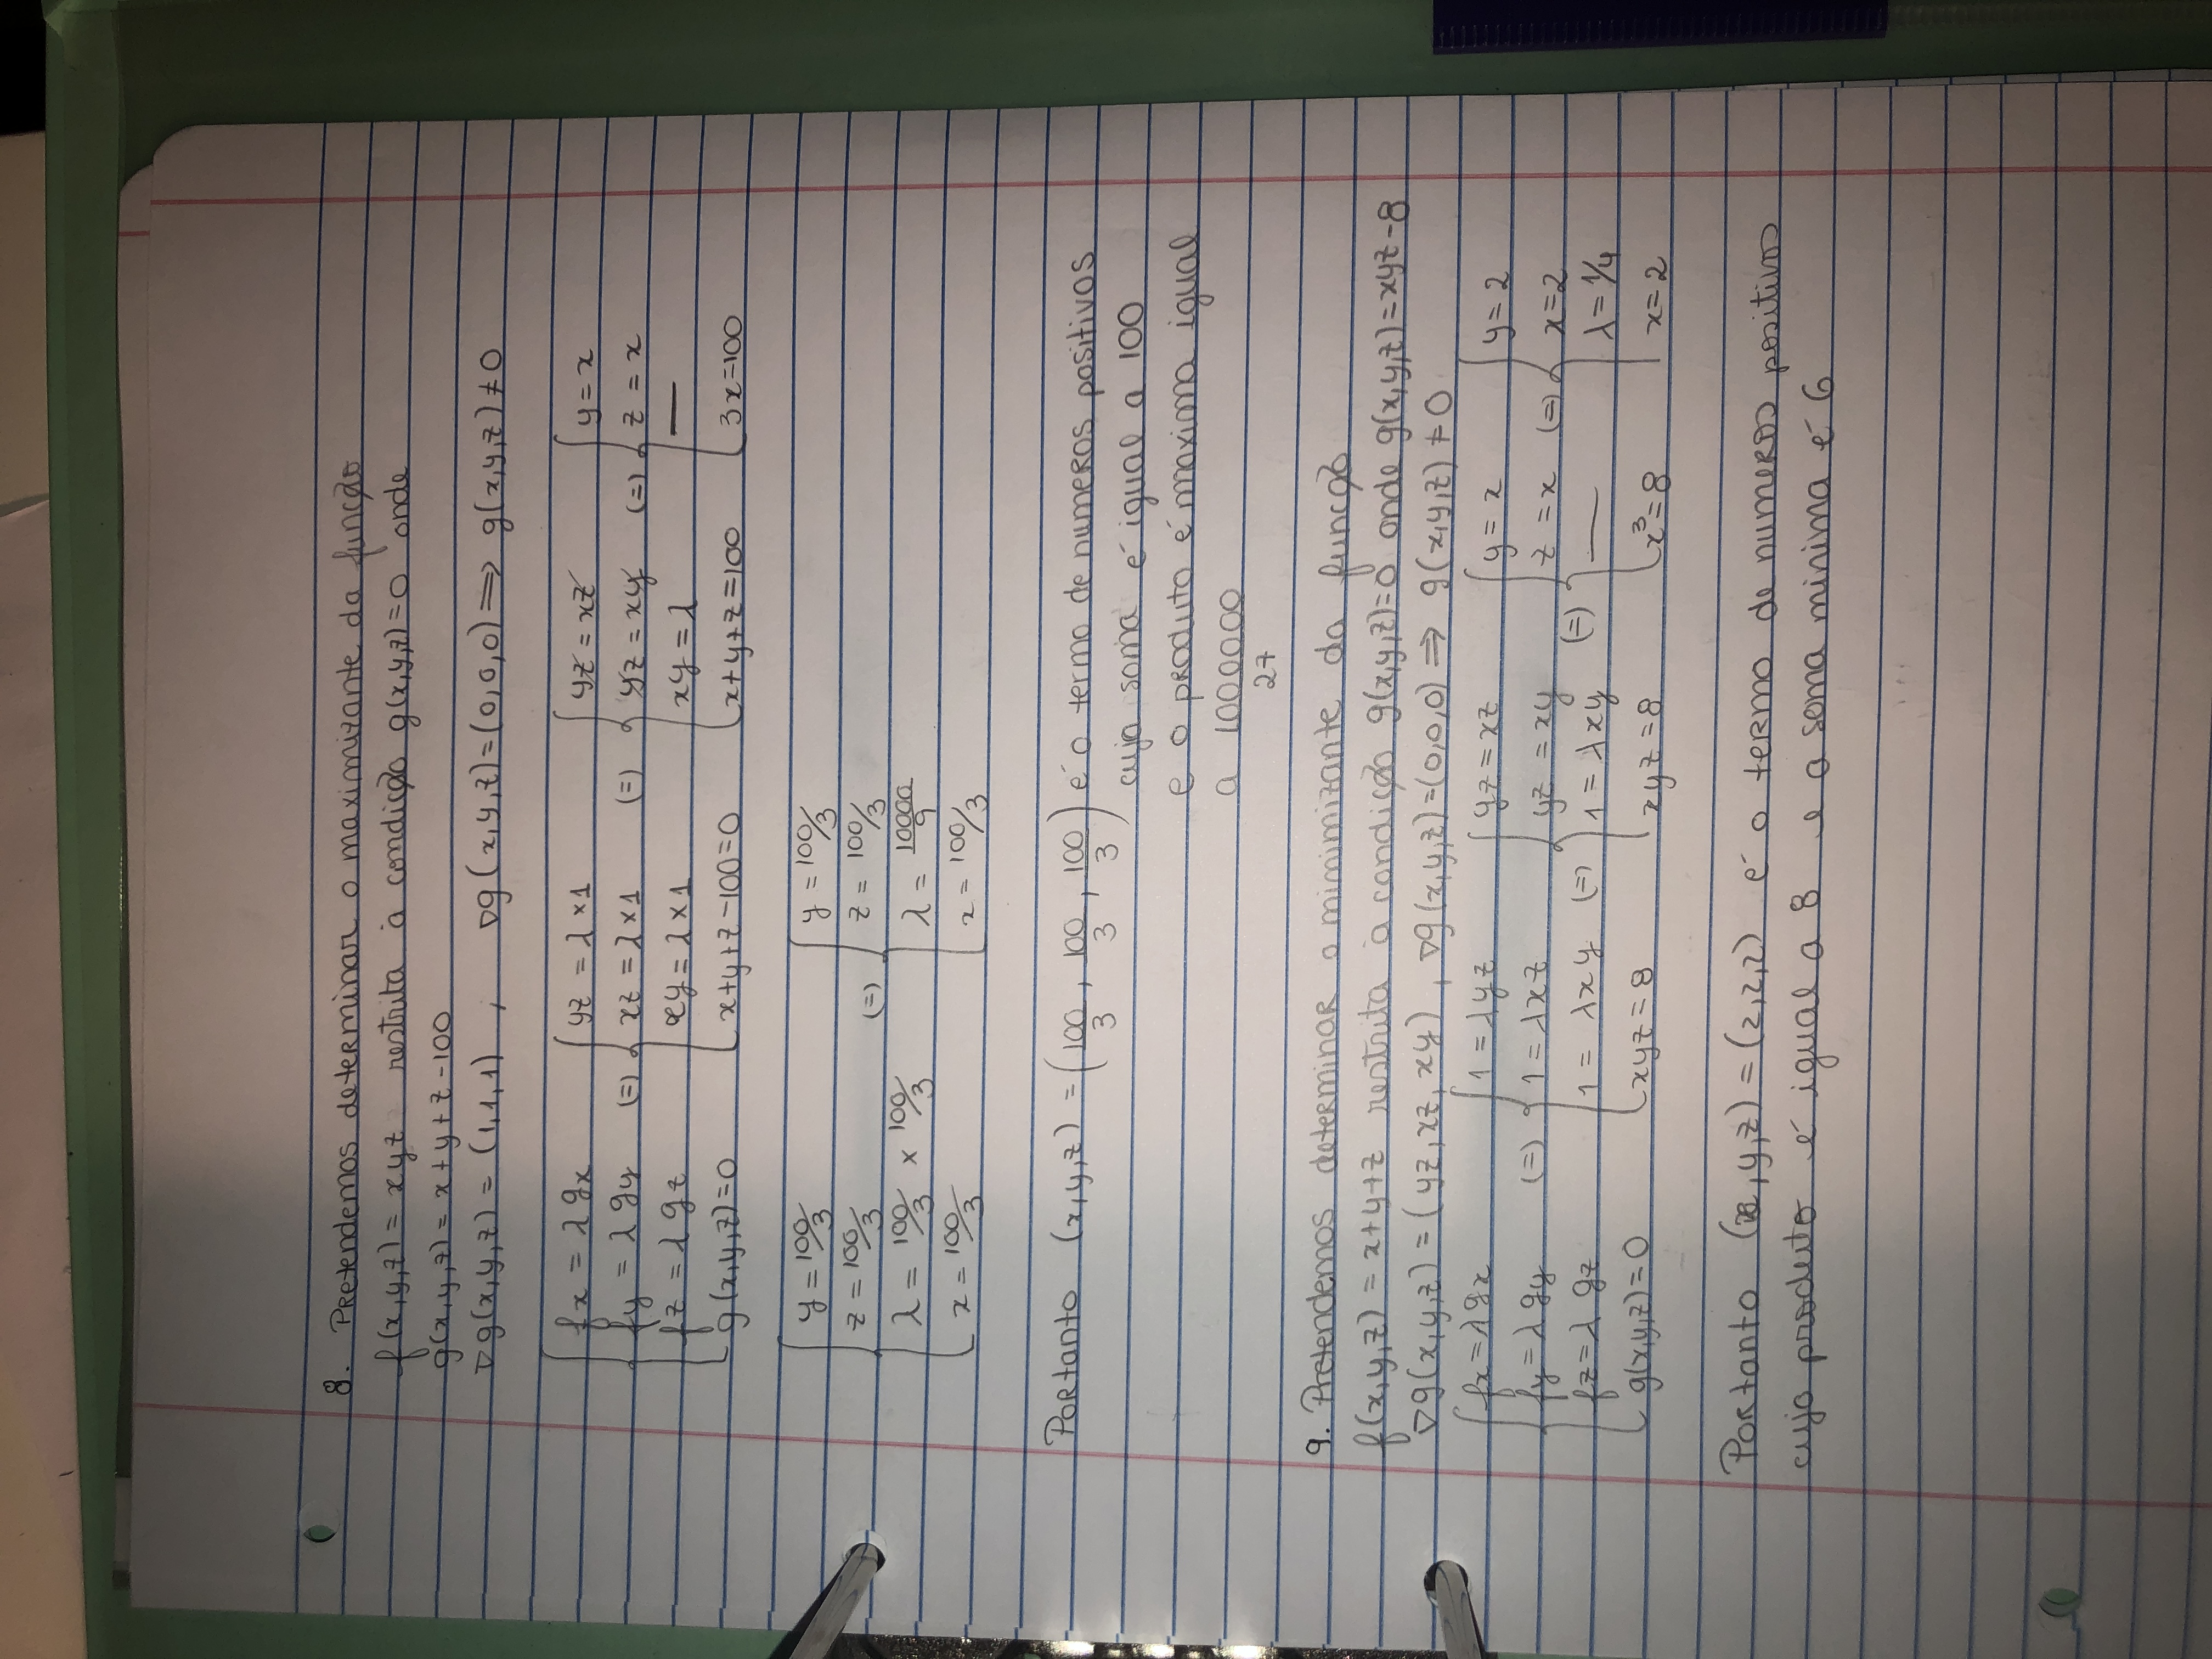 8. Pretendemos determinar o maximizante da função
f(x,y,z) = xyz restrita à condição g(x,y,z)=0 onde
g(x,y,z) = x+y+z-100
∇g(x,y,z) = (1,1,1) , ∇g(x,y,z)=(0,0,0) ⟹ g(x,y,z) ≠ 0
{ fx = λgx (=) { yz = λ×1 (=) { yz = xz (=) { y = x
fy = λgy xz = λ×1 yz = xy z = x
fz = λgz xy = λ×1 xy = λ —
g(x,y,z)=0 x+y+z-100=0 x+y+z=100 3x=100
{ y = 100/3 (=) { y = 100/3
z = 100/3 z = 100/3
λ = 100/3 × 100/3 λ = 10000/9
x = 100/3 x = 100/3
Portanto (x,y,z) = (100/3, 100/3, 100/3) é o termo de numeros positivos
cuja soma é igual a 100
e o produto é maxima igual
a 1000000/27
9. Pretendemos determinar o mimimizante da função
f(x,y,z) = x+y+z restrita à condição g(x,y,z)=0 onde g(x,y,z)=xyz-8
∇g(x,y,z) = (yz, xz, xy) , ∇g(x,y,z)=(0,0,0) ⟹ g(x,y,z) ≠ 0
{ fx=λgx (=) { 1 = λyz (=) { yz = xz (=) { y = x (=) { y = 2
fy=λgy 1 = λxz yz = xy z = x x=2
fz=λgz 1 = λxy 1 = λxy — λ=1/4
g(x,y,z)=0 xyz=8 xyz=8 x³=8 x=2
Portanto (x,y,z) = (2,2,2) é o termo de numeros positivos
cujo produto é igual a 8 e a soma minima é 6